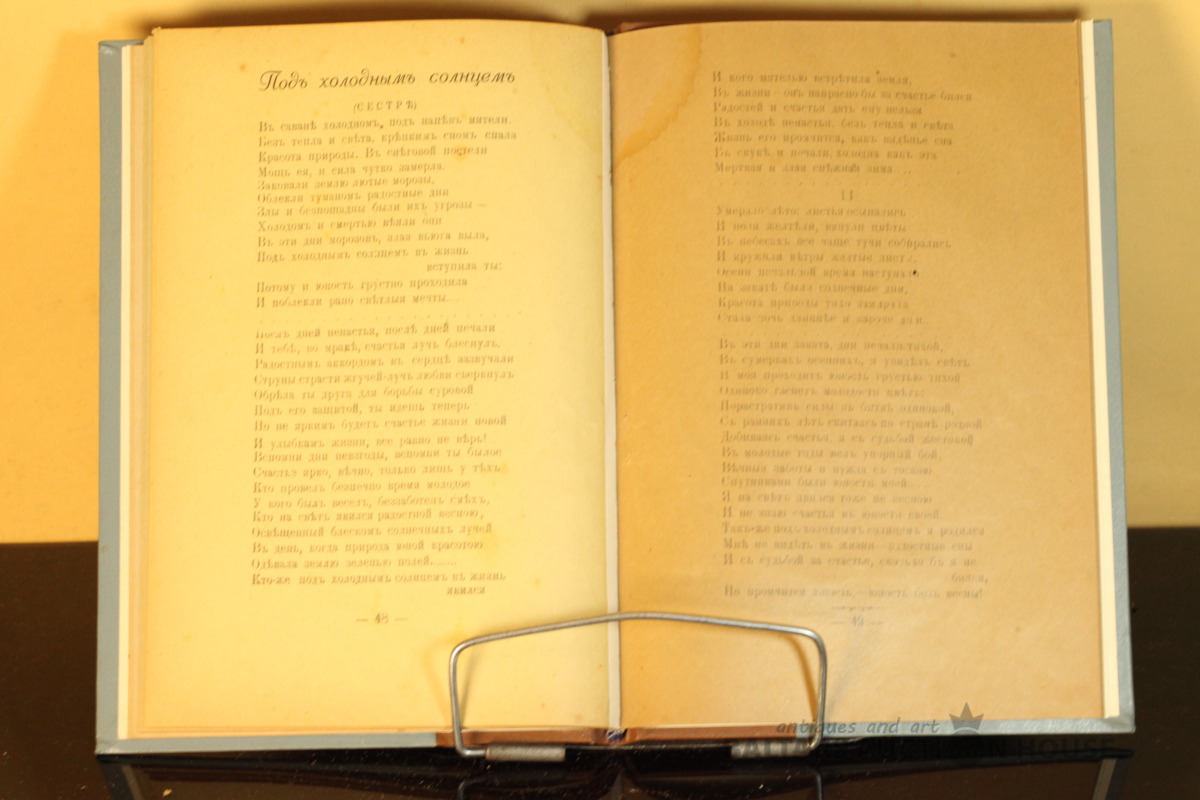 Подъ холоднымъ солнцемъ
(СЕСТРѢ)
Въ саванѣ холодномъ, подъ напѣвъ мятели.
Безъ тепла и свѣта, крѣпкимъ сномъ спала
Красота природы. Въ снѣговой постели
Мощь ея, и сила чутко замерла.
Заковали землю лютые морозы,
Облекли туманомъ радостные дни
Злы и безпощадны были ихъ угрозы —
Холодомъ и смертью вѣяли они
Въ эти дни морозовъ, злая вьюга выла,
Подъ холоднымъ солнцемъ въ жизнь
вступила ты:
Потому и юность грустно проходила
И поблекли рано свѣтлыя мечты...
Послѣ дней ненастья, послѣ дней печали
И тебѣ, во мракѣ, счастья лучъ блеснулъ,
Радостнымъ аккордомъ въ сердцѣ зазвучали
Струны страсти жгучей-лучъ любви сверкнулъ
Обрѣла ты друга для борьбы суровой
Подъ его защитой, ты идешь теперь
Но не яркимъ будетъ счастье жизни новой
И улыбкамъ жизни, все равно не вѣрь!
Вспомни дни невзгоды, вспомни ты былое
Счастье ярко, вѣчно, только лишь у тѣхъ
Кто провелъ безпечно время молодое
У кого былъ веселъ, беззаботенъ смѣхъ,
Кто на свѣтъ явился радостной весною,
Освѣщенный блескомъ солнечныхъ лучей
Въ день, когда природа юной красотою
Одѣвала землю зеленью полей......
Кто-же подъ холоднымъ солнцемъ въ жизнь
явился
— 48 —
И кого мятелью встрѣтила земля,
Въ жизни—онъ напрасно бы за счастье бился
Радостей и счастья дать ему нельзя
Въ холодѣ ненастья, безъ тепла и свѣта
Жизнь его промчится, какъ видѣнье сна
Въ скукѣ и печали, холодна какъ эта
Мертвая и злая снѣжная зима ...
II
Умерало лѣто: листья осыпались
И поля желтѣли, вянули цвѣты
Въ небесахъ все чаще тучи собирались
И кружили вѣтры желтые листы,
Осени печальной время наступало
На закатѣ были солнечные дни,
Красота природы тихо
Стала ночь длиннѣе и короче дни..
Въ эти дни заката, дни печали тихой,
Въ сумеркахъ осеннихъ, я увидѣлъ свѣтъ
И моя проходитъ юность грустью тихой
Одиноко гаснетъ молодости цвѣтъ:
Порастративъ силы въ битвѣ одинокой,
Съ раннихъ лѣтъ скитаясь по странѣ родной
Добиваясь счастья, я съ судьбой жестокой
Въ молодые годы велъ упорный бой,
Вѣчныя заботы и нужда съ тоскою
Спутниками были юности моей.....
Я на свѣтъ явился тоже не весною
И не знаю счастья въ юности своей.
Такъ-же подъ холоднымъ солнцемъ я родился
Мнѣ не видѣть въ жизни—радостные сны
И съ судьбой за счастье, сколько бъ я не
бился,
Но промчится юность,—юность безъ весны!
— 49 —
antiques and art